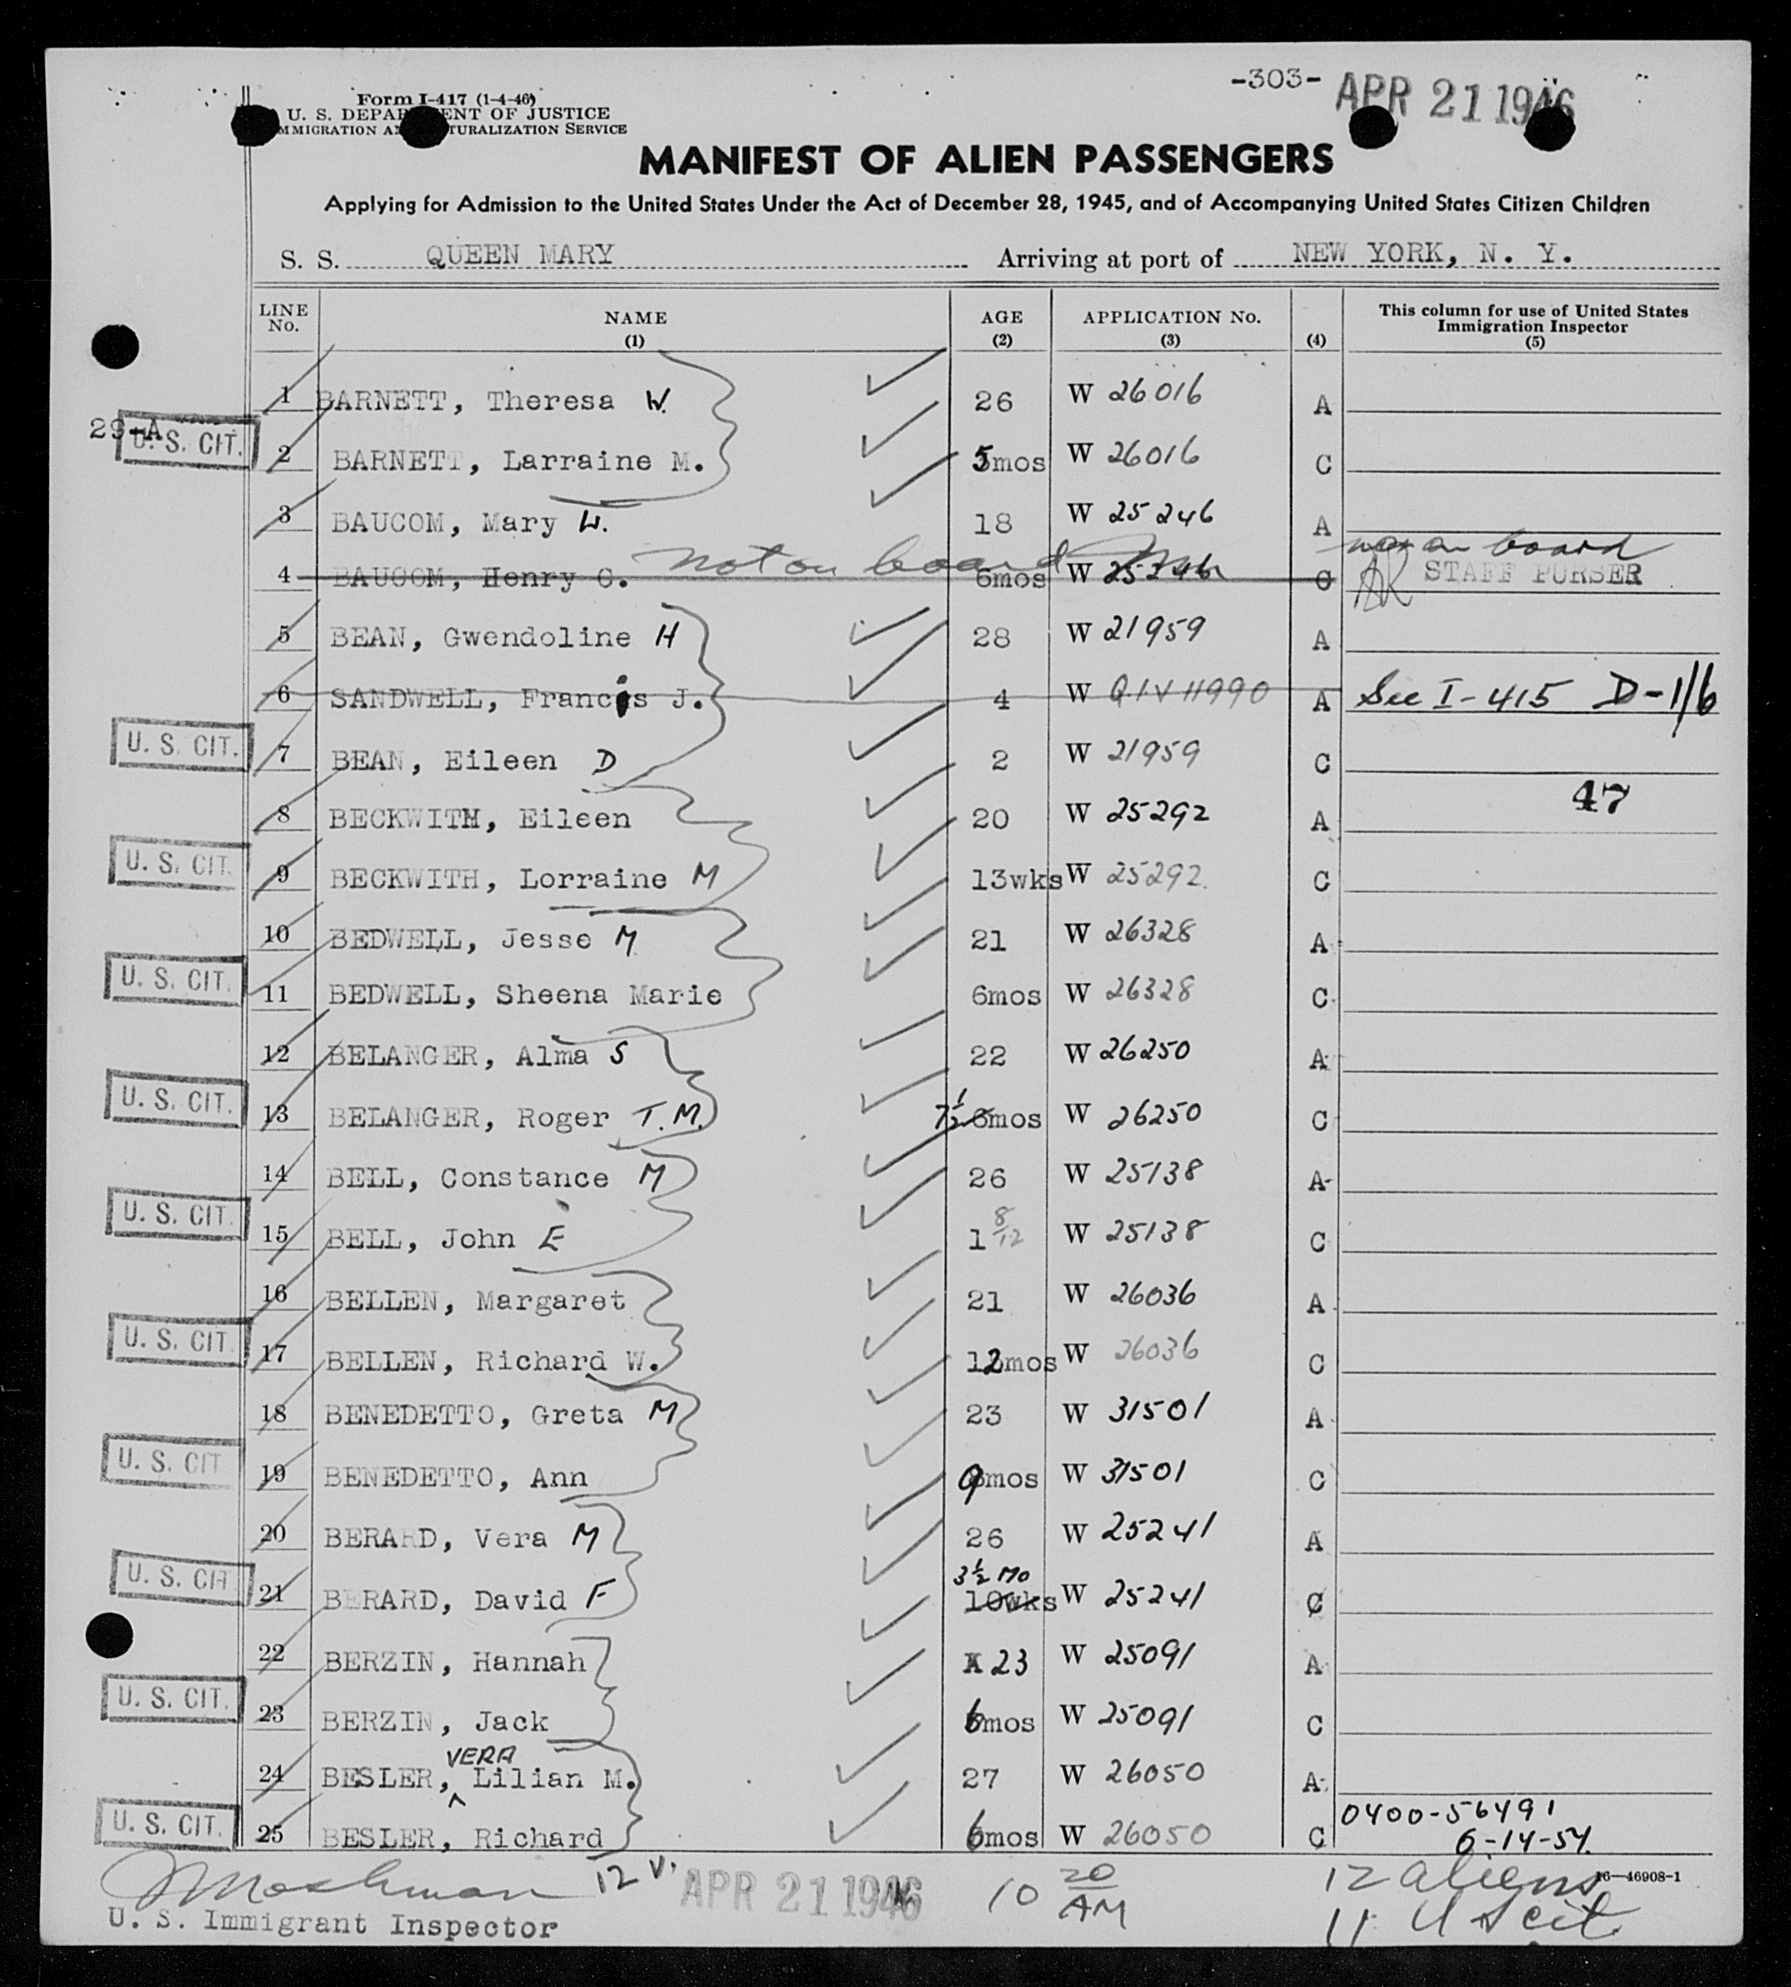 -303- APR 21 1946
Form I-417 (1-4-46)
U. S. DEPARTMENT OF JUSTICE
IMMIGRATION AND NATURALIZATION SERVICE
MANIFEST OF ALIEN PASSENGERS
Applying for Admission to the United States Under the Act of December 28, 1945, and of Accompanying United States Citizen Children
S. S. QUEEN MARY Arriving at port of NEW YORK, N. Y.
LINE No. NAME (1) AGE (2) APPLICATION No. (3) (4) This column for use of United States Immigration Inspector (5)
1 BARNETT, Theresa W. 26 W 26016 A
29-A U. S. CIT. 2 BARNETT, Larraine M. 5mos W 26016 C
3 BAUCOM, Mary W. 18 W 25246 A
not on board
4 BAUCOM, Henry C. not on board 6mos W 25246 C STAFF PURSER
5 BEAN, Gwendoline H 28 W 21959 A
6 SANDWELL, Francis J. 4 W QIV 11990 A See I-415 D-1/6
U. S. CIT. 7 BEAN, Eileen D 2 W 21959 C
47
8 BECKWITH, Eileen 20 W 25292 A
U. S. CIT. 9 BECKWITH, Lorraine M 13wks W 25292 C
10 BEDWELL, Jesse M 21 W 26328 A
U. S. CIT. 11 BEDWELL, Sheena Marie 6mos W 26328 C
12 BELANGER, Alma S 22 W 26250 A
U. S. CIT. 13 BELANGER, Roger T.M. 7½ 6mos W 26250 C
14 BELL, Constance M 26 W 25138 A
U. S. CIT. 15 BELL, John E 1 8/12 W 25138 C
16 BELLEN, Margaret 21 W 26036 A
U. S. CIT. 17 BELLEN, Richard W. 12mos W 26036 C
18 BENEDETTO, Greta M 23 W 31501 A
U. S. CIT 19 BENEDETTO, Ann 9mos W 31501 C
20 BERARD, Vera M 26 W 25241 A
3½ Mo
U. S. CIT 21 BERARD, David F 10wks W 25241 C
22 BERZIN, Hannah 23 W 25091 A
U. S. CIT. 23 BERZIN, Jack 6mos W 25091 C
VERA
24 BESLER, Lilian M. 27 W 26050 A
0400-56491
U. S. CIT. 25 BESLER, Richard 6mos W 26050 C 6-14-54.
12 v. APR 21 1946 10 20 AM 12 aliens 16—46908-1
U. S. Immigrant Inspector 11 US cit